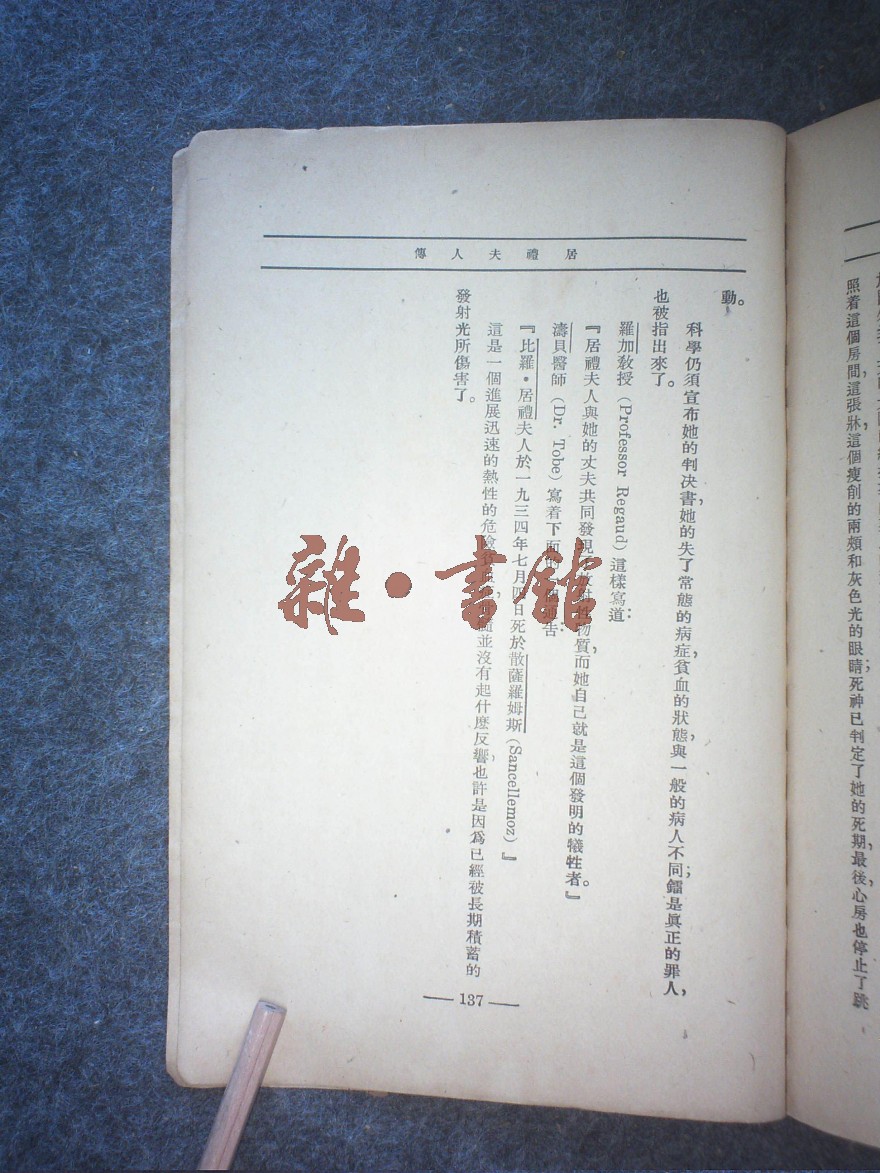 照着這個房間，這張牀，這個瘦削的兩頰和灰色光的眼睛；死神已判定了她的死期，最後心房也停止了跳
居禮夫人傳
動。
科學仍須宣布她的判决書，她的失了常態的病症，貧血的狀態，與一般的病人不同；鐳是眞正的罪人，
也被指出來了。
羅加敎授（Professor Regaud）這樣寫道：
『居禮夫人與她的丈夫共同發現放射性物質，而她自己就是這個發明的犧牲者。』
濤貝醫師（Dr. Tobe）寫着下面的告：
『比羅・居禮夫人於一九三四年七月四日死於散薩羅姆斯（Sancellemoz）』
這是一個進展迅速的熱性的危險並沒有起什麽反響，也許是因爲已經被長期積蓄的
發射光所傷害了。
— 137 —
雜・書館